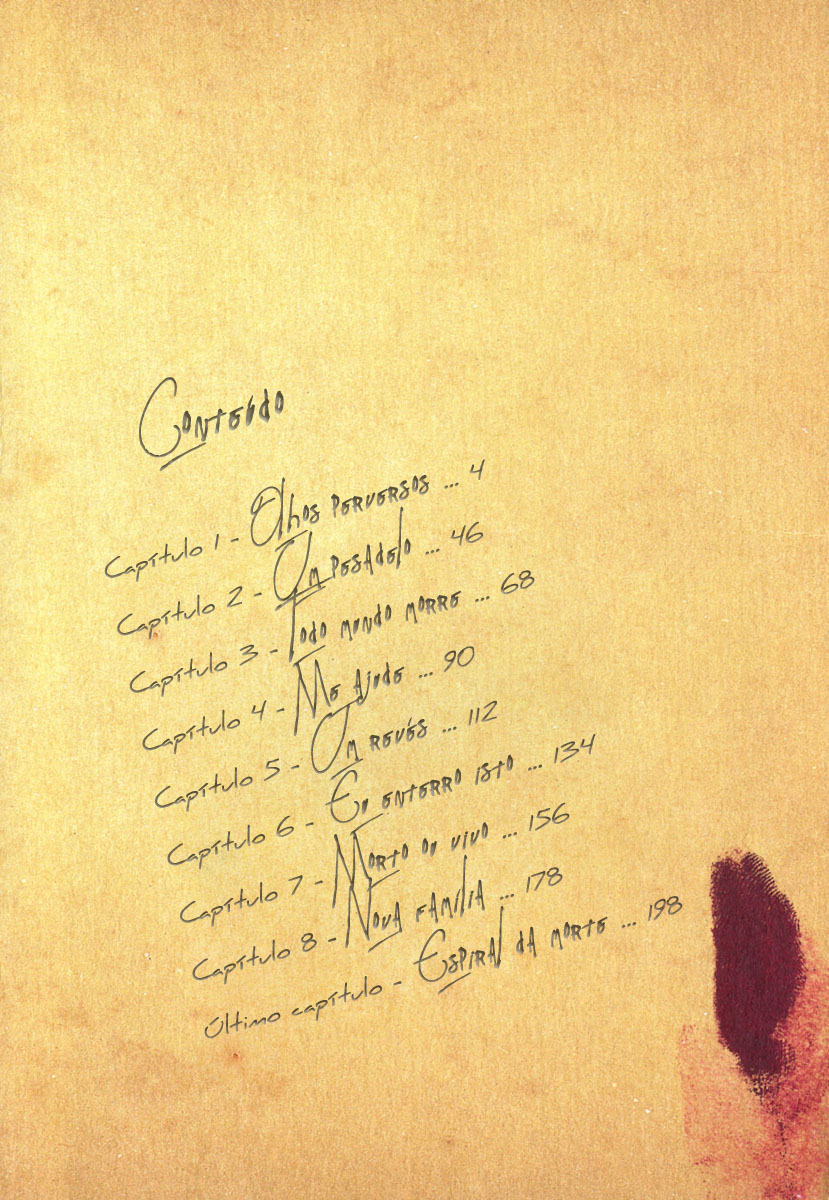 Conteúdo
Capítulo 1 - Olhos perversos ... 4
Capítulo 2 - Um pesadelo ... 46
Capítulo 3 - Todo mundo morre ... 68
Capítulo 4 - Me ajude ... 90
Capítulo 5 - Um revés ... 112
Capítulo 6 - Eu enterro isto ... 134
Capítulo 7 - Morto ou vivo ... 156
Capítulo 8 - Nova família ... 178
Último capítulo - Espiral da morte ... 198